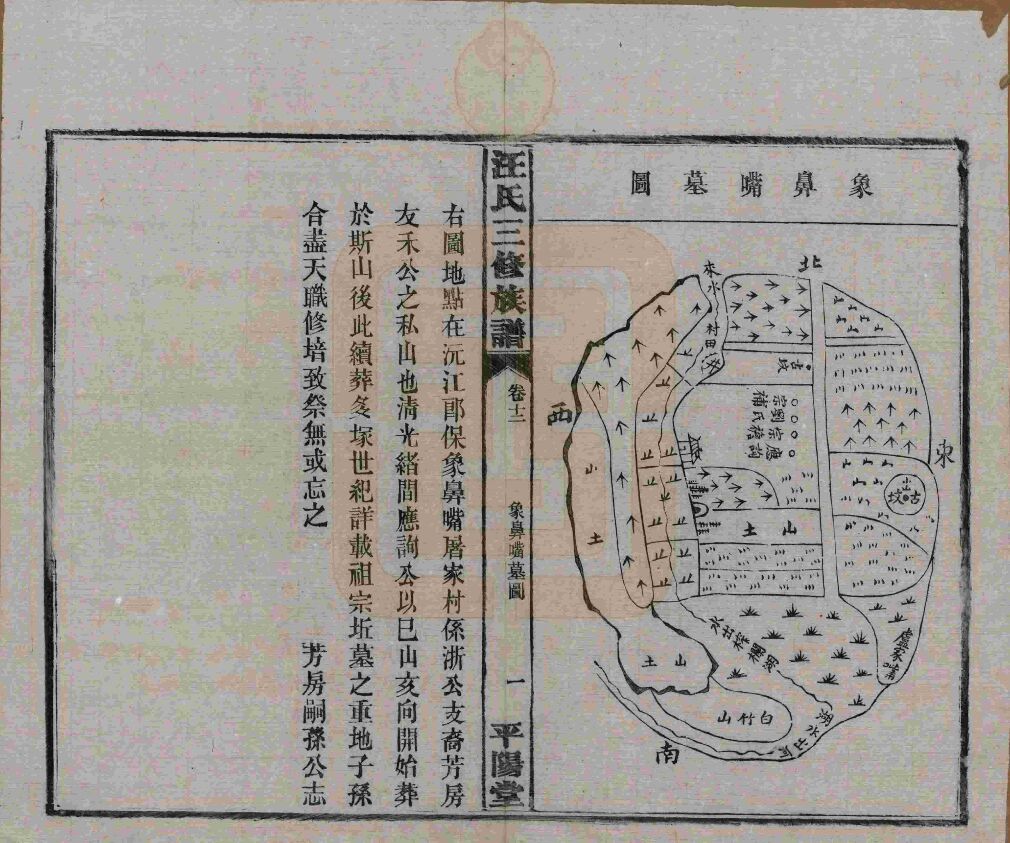 象鼻嘴墓圖
北
東
南
西
來水
村田
古坟
應詢
宗稽
劉氏
宗補
古坟
山土
山土
山土
盧家嘴
白竹山
湖水
汪氏三修族譜
卷十二
象鼻嘴墓圖
一
平陽堂
右圖地點在沅江郡保象鼻嘴屠家村係浙公支裔芳房
友禾公之私山也清光緒間應詢公以巳山亥向開始葬
於斯山後此續葬多塚世紀詳載祖宗坵墓之重地子孫
合盡天職修培致祭無或忘之
芳房嗣孫公志